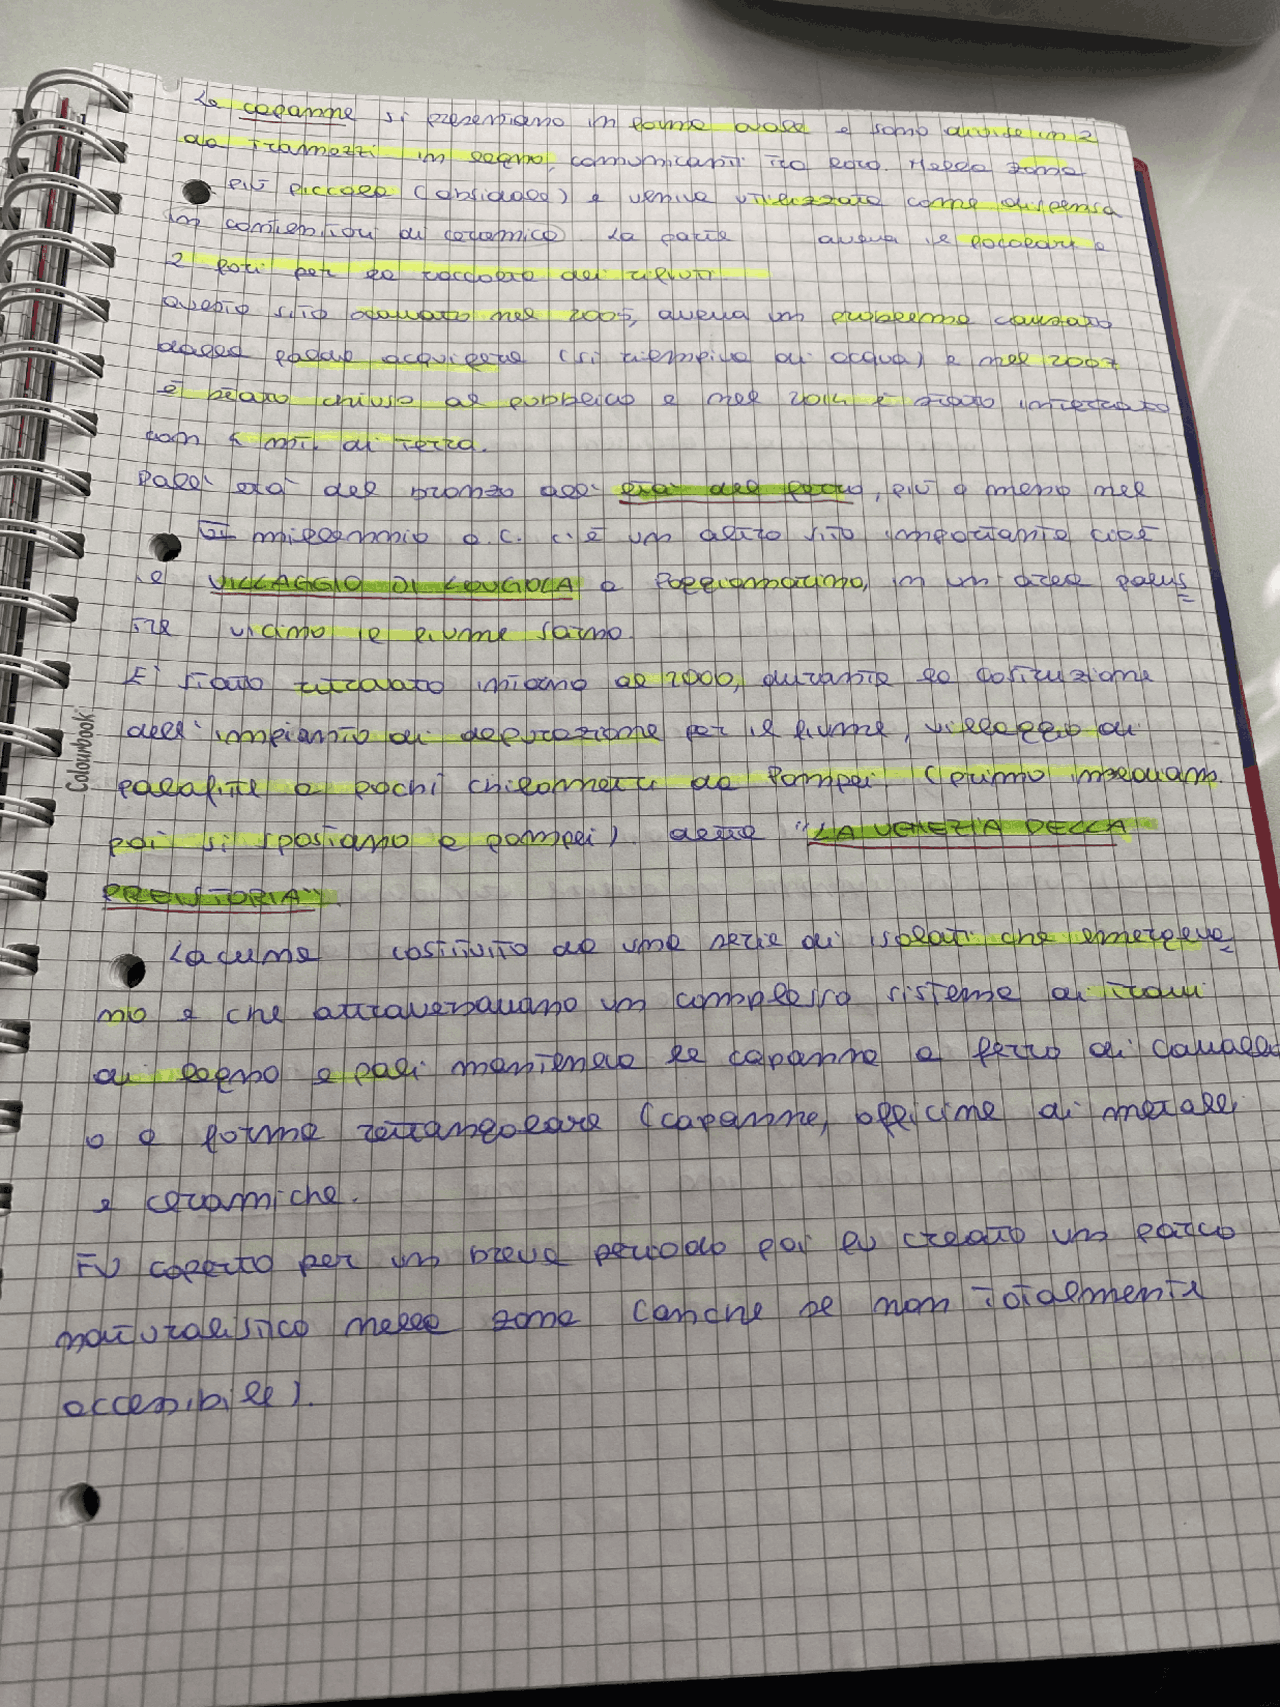 Le capanne si presentano in forma ovale e sono divise in 2
da tramezzi in legno, comunicanti tra loro. Nella zona
più piccola (absidale) e veniva utilizzata come dispensa
in contenitori di ceramica. La parte aveva il focolare e
2 fori per la raccolta dei rifiuti
Questo sito scavato nel 2005, aveva un problema causato
dalla falde acquifere (si riempiva di acqua) e nel 2007
è stato chiuso al pubblico e nel 2014 è stato interrato
con 5 mt. di terra.
Dall' età del bronzo all' età del ferro, più o meno nel
II millennio a.C. c'è un altro sito importante cioè
il VILLAGGIO DI LONGOLA a Poggiomarino, in un area palus=
tre vicino il fiume Sarno.
E' stato trovato intorno al 2000, durante la costruzione
dell' impianto di depurazione per il fiume, villaggio di
palafitte a pochi chilometri da Pompei (primo insediam.
poi si spostano a pompei) detto "LA VENEZIA DELLA
PREISTORIA".
Lacuna costituito da una serie di isolati che emergeva=
no e che attraversavano un complesso sistema di travi
di legno e pali mantenevo le capanne a ferro di cavall
o a forma rettangolare (capanne, officine di metalli
e ceramiche.
Fu coperto per un breve periodo poi fu creato un parco
naturalistico nella zona (anche se non totalmente
accessibile).
Colourbook